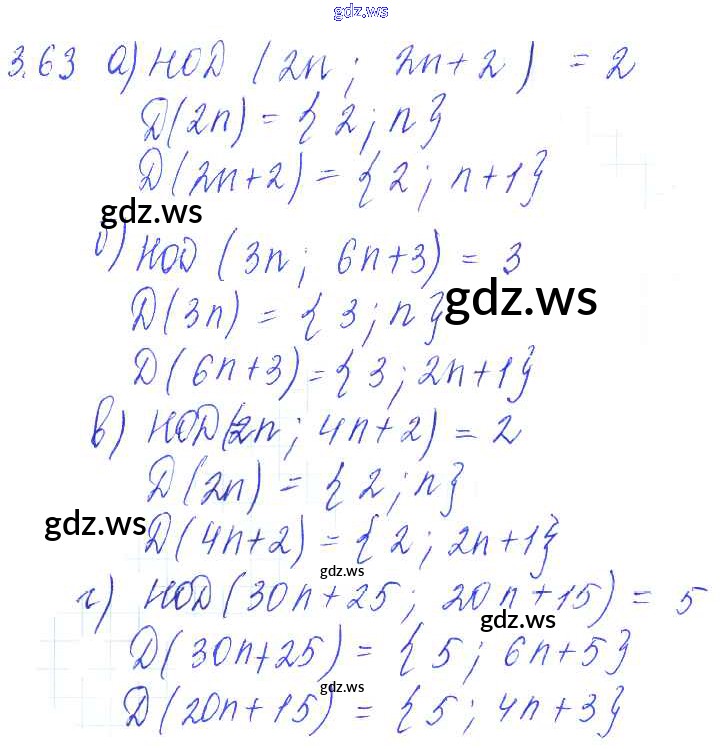 gdz.ws
3.63 а) НОД (2n ; 2n+2) = 2
D(2n) = {2 ; n}
D(2n+2) = {2 ; n+1}
gdz.ws
б) НОД (3n ; 6n+3) = 3
gdz.ws
D(3n) = {3 ; n}
D(6n+3) = {3 ; 2n+1}
в) НОД(2n ; 4n+2) = 2
D(2n) = {2 ; n}
gdz.ws
D(4n+2) = {2 ; 2n+1}
gdz.ws
г) НОД(30n+25 ; 20n+15) = 5
gdz.ws
D(30n+25) = {5 ; 6n+5}
gdz.ws
D(20n+15) = {5 ; 4n+3}